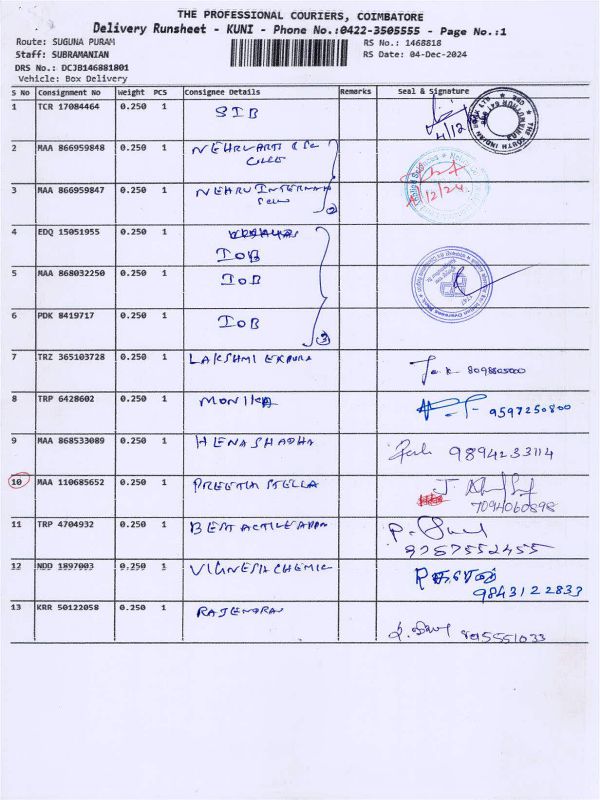 THE PROFESSIONAL COURIERS, COIMBATORE
Delivery Runsheet - KUNI - Phone No.:0422-3505555 - Page No.:1
Route: SUGUNA PURAM
RS No.: 1468818
Staff: SUBRAMANIAN
RS Date: 04-Dec-2024
DRS No.: DCJB146881801
Vehicle: Box Delivery
S No Consignment No Weight PCS Consignee Details Remarks Seal & Signature
1 TCR 17084464 0.250 1 SIB
4/12
2 MAA 866959848 0.250 1 NEHRU ARTS & SC
COLLE
3 MAA 866959847 0.250 1 NEHRU INTERNAN
12/24
2
4 EDQ 15051955 0.250 1
IOB
5 MAA 868032250 0.250 1 IOB
6 PDK 8419717 0.250 1 IOB
3
7 TRZ 365103728 0.250 1 LAKSHMI EXPORD
8 TRP 6428602 0.250 1 MONIKA 9597250800
9 MAA 868533089 0.250 1 HENASHADHA 9894233114
10 MAA 110685652 0.250 1 PREETHA STELLA
7094060898
11 TRP 4704932 0.250 1 BEST ACTIVE APPA
12 NDD 1897003 0.250 1 VIGNESH CHEMIC
9843122833
13 KRR 50122058 0.250 1 RAJENDRAN